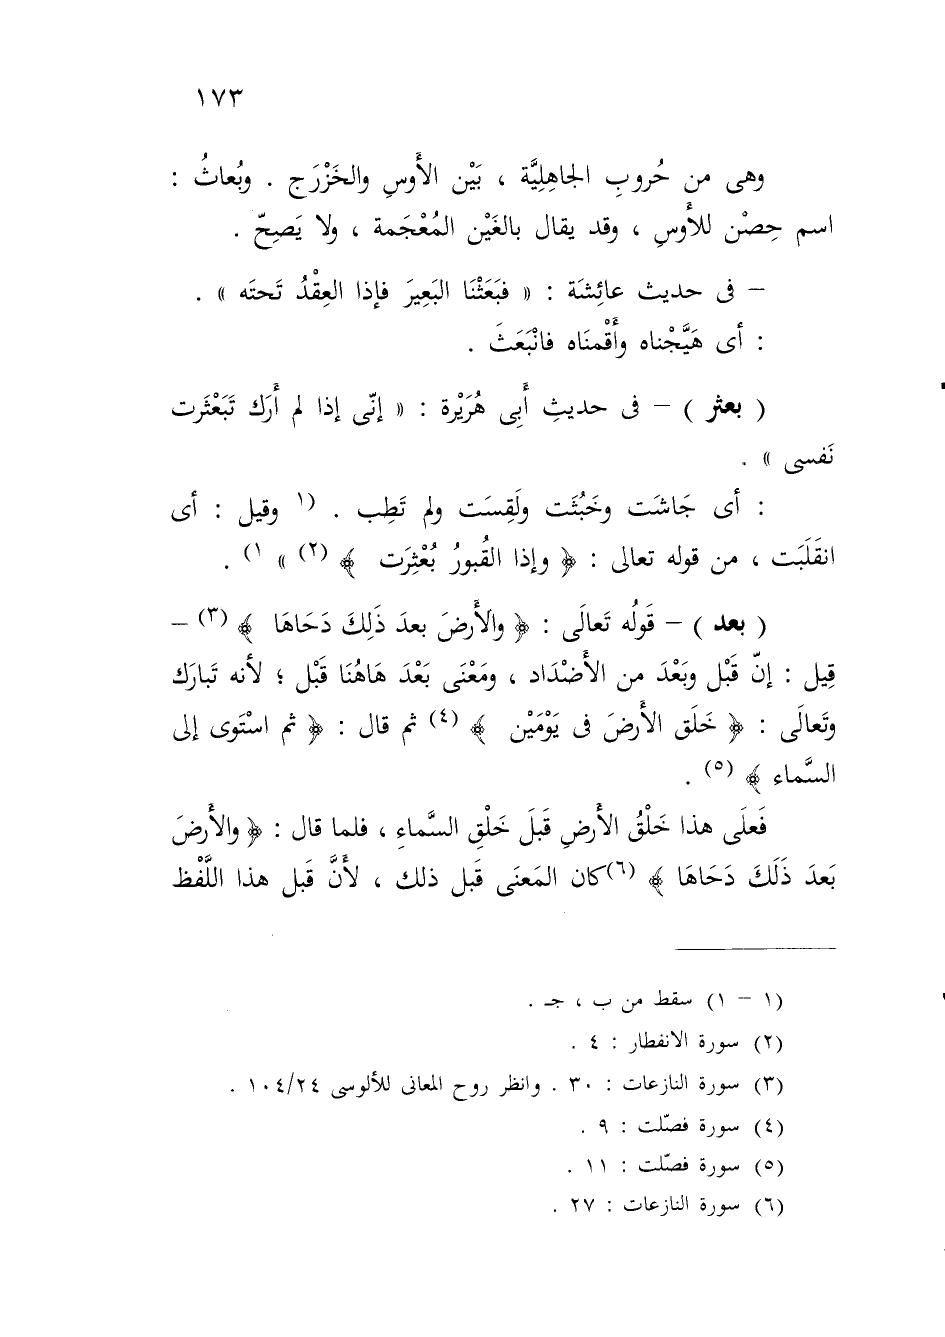 ١٧٣
وهى من حُروبِ الجاهِلِيَّة ، بَيْن الأَوسِ والخَزْرَج . وبُعاثُ :
اسم حِصْن للأَوسِ ، وقد يقال بالغَيْن المُعْجَمة ، ولا يَصِحّ .
– فى حديث عائِشَة : « فبَعَثْنَا البَعِيرَ فإذا العِقْدُ تَحتَه » .
: أى هَيَّجْناه وأَقْمنَاه فانْبَعَثَ .
( بعثر ) – فى حديثِ أَبِى هُرَيْرة : « إنّى إذا لم أَرَك تَبَعْثَرت
نَفسى » .
: أى جَاشَت وخَبُثَت ولَقِسَت ولم تَطِب . (١ وقيل : أى
انقَلَبَت ، من قوله تعالى : ﴿ وإذا القُبورُ بُعْثِرَت ﴾ (٢) » ١) .
( بعد ) – قَولُه تَعالَى : ﴿ والأَرضَ بعدَ ذَلِكَ دَحَاهَا ﴾ (٣) –
قِيل : إنّ قَبْل وبَعْدَ من الأَضْدَاد ، ومَعْنَى بَعْدَ هَاهُنَا قَبْل ؛ لأنه تَبارَك
وتَعالَى : ﴿ خَلَق الأَرضَ فى يَوْمَيْن ﴾ (٤) ثم قال : ﴿ ثم اسْتَوى إلى
السَّماء ﴾ (٥) .
فَعلَى هذا خَلْقُ الأَرضِ قَبلَ خَلْقِ السَّماءِ ، فلما قال : ﴿ والأَرضَ
بَعدَ ذَلَكَ دَحَاهَا ﴾ (٦) كان المَعنَى قَبل ذلك ، لأَنَّ قَبل هذا اللَّفْظ
(١ – ١) سقط من ب ، جـ .
(٢) سورة الانفطار : ٤ .
(٣) سورة النازعات : ٣٠ . وانظر روح المعانى للألوسى ١٠٤/٢٤ .
(٤) سورة فصّلت : ٩ .
(٥) سورة فصّلت : ١١ .
(٦) سورة النازعات : ٢٧ .